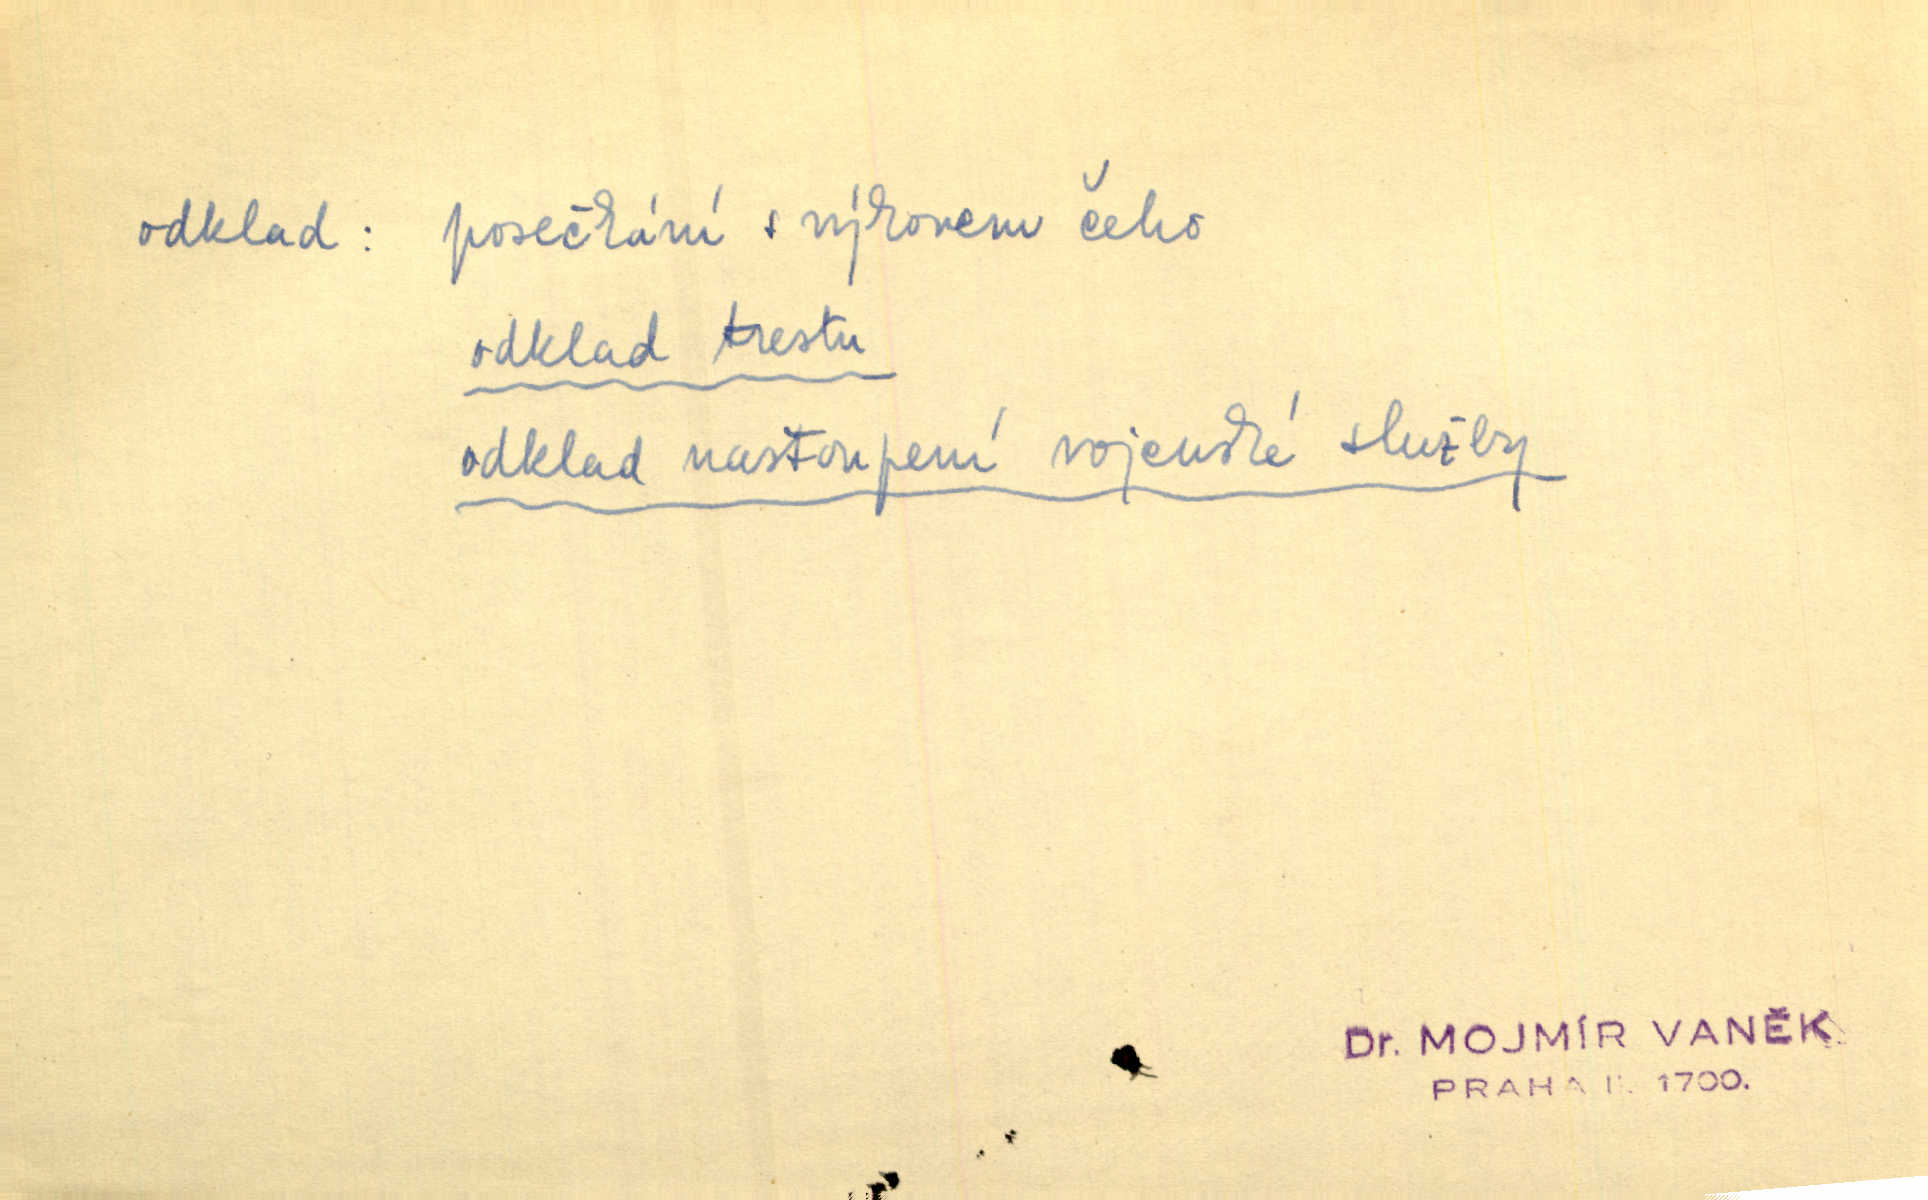 odklad: posečkání s výkonem čeho
odklad trestu
odklad nastoupení vojenské služby
Dr. MOJMÍR VANĚK
PRAHA II. 1700.